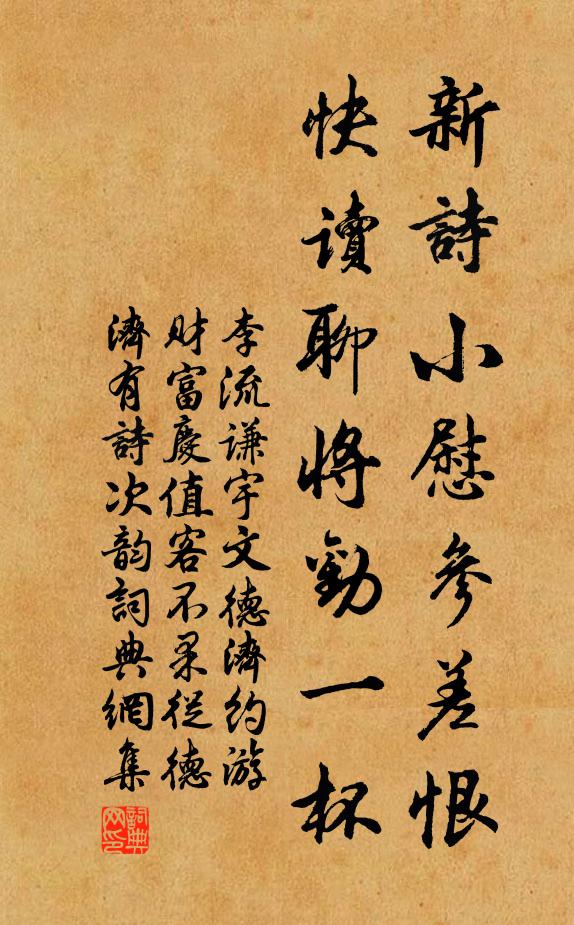 新詩小慰參差恨
快讀聊將勸一杯
李流谦宇文德濟約游
财富慶值客不果從德
濟有詩次韵詞典網集
詞典网印